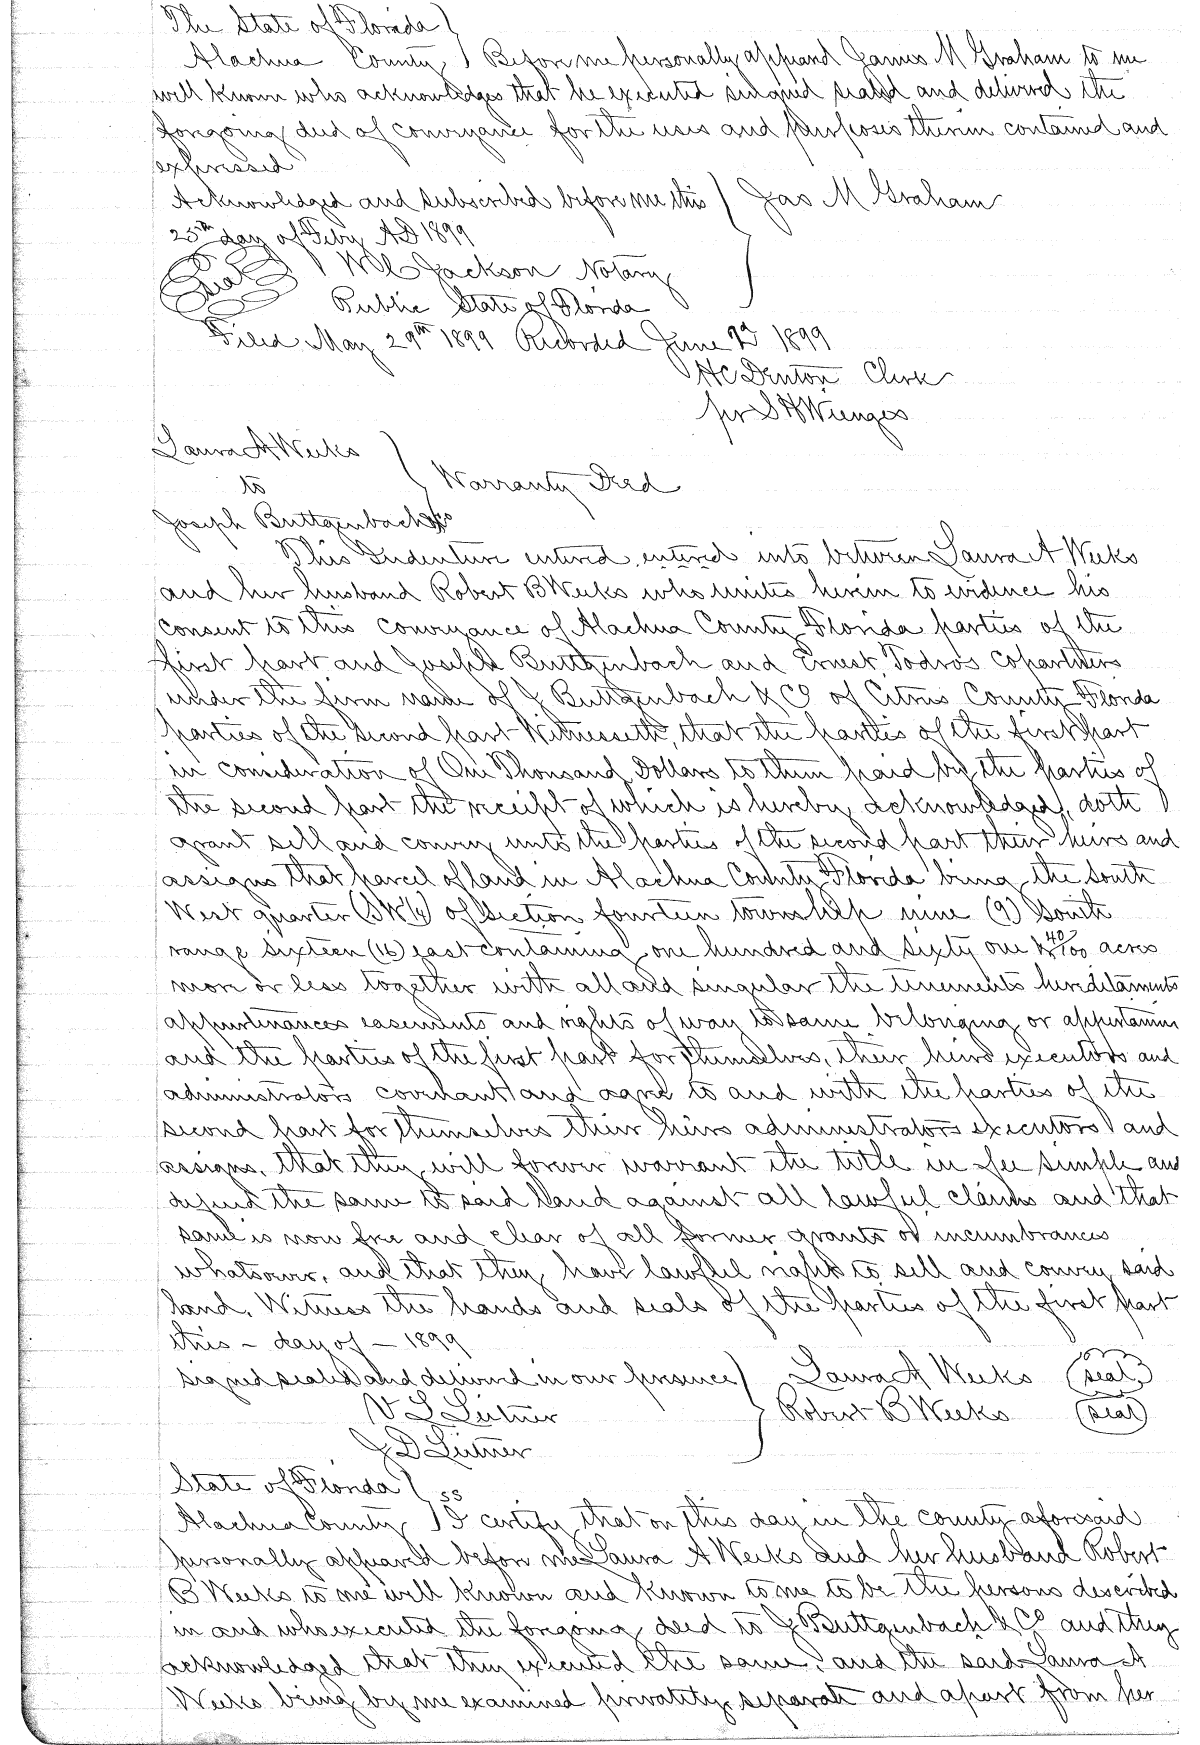 The State of Florida )
Alachua County ) Before me personally appeard James M Graham to me
well known who acknowledges that he executed singned seald and deliverd the
forgoing deed of conveyance for the uses and purposes therein contained and
expressed
Acknowledged and subscribed before me this ) Jas M Graham
25th day of Feby AD 1899
Seal ) Jackson Notary
Public State of Florida
Filed May 29th 1899 Recorded June 1899
HC Denton Clerk
pr S H Wienges
Laura A Weeks
to ) Warranty Deed
Joseph Buttgenbach & Co
This Indenture entered entered into between Laura A Weeks
and her husband Robert B Weeks who unites herein to evidence his
consent to this conveyance of Alachua County Florida parties of the
first part and Joseph Buttgenbach and Ernest Todros copartners
under the firm name of J Buttgenbach & Co of Citrus County Florida
parties of the second part Witnesseth, that the parties of the first part
in consideration of One Thousand Dollars to them paid by the parties of
the second part the receipt of which is hereby acknowledged, doth
grant sell and convey unto the parties of the second part their heirs and
assigns that parcel of land in Alachua County Florida being the South
West quarter (SW¼) of Section fourteen township nine (9) South
range sixteen (16) east containing one hundred and sixty one & 40/100 acres
more or less together with all and singular the tenements hereditaments
appurtenances easements and rights of way to same belonging or appertaining
and the parties of the first part for themselves, their heirs executors and
administrators covenant and agree to and with the parties of the
second part for themselves their heirs administrators executors and
assigns, that they will forever warrant the title in fee simple and
defend the same to said land against all lawful claims and that
same is now free and clear of all former grants or incumbrances
whatsoever, and that they have lawful right to sell and convey said
land. Witness the hands and seals of the parties of the first part
this - day of - 1899
signed sealed and delivered in our presence ) Laura A Weeks (seal)
V L Leitner ) Robert B Weeks (seal)
J D Leitner
State of Florida )
Alachua County ) ss I certify that on this day in the county aforesaid
personally appeared before me Laura A Weeks and her husband Robert
B Weeks to me well known and known to me to be the persons described
in and who executed the forgoing deed to J Buttgenbach & Co and they
acknowledged that they executed the same, and the said Laura A
Weeks being by me examined privately separate and apart from her